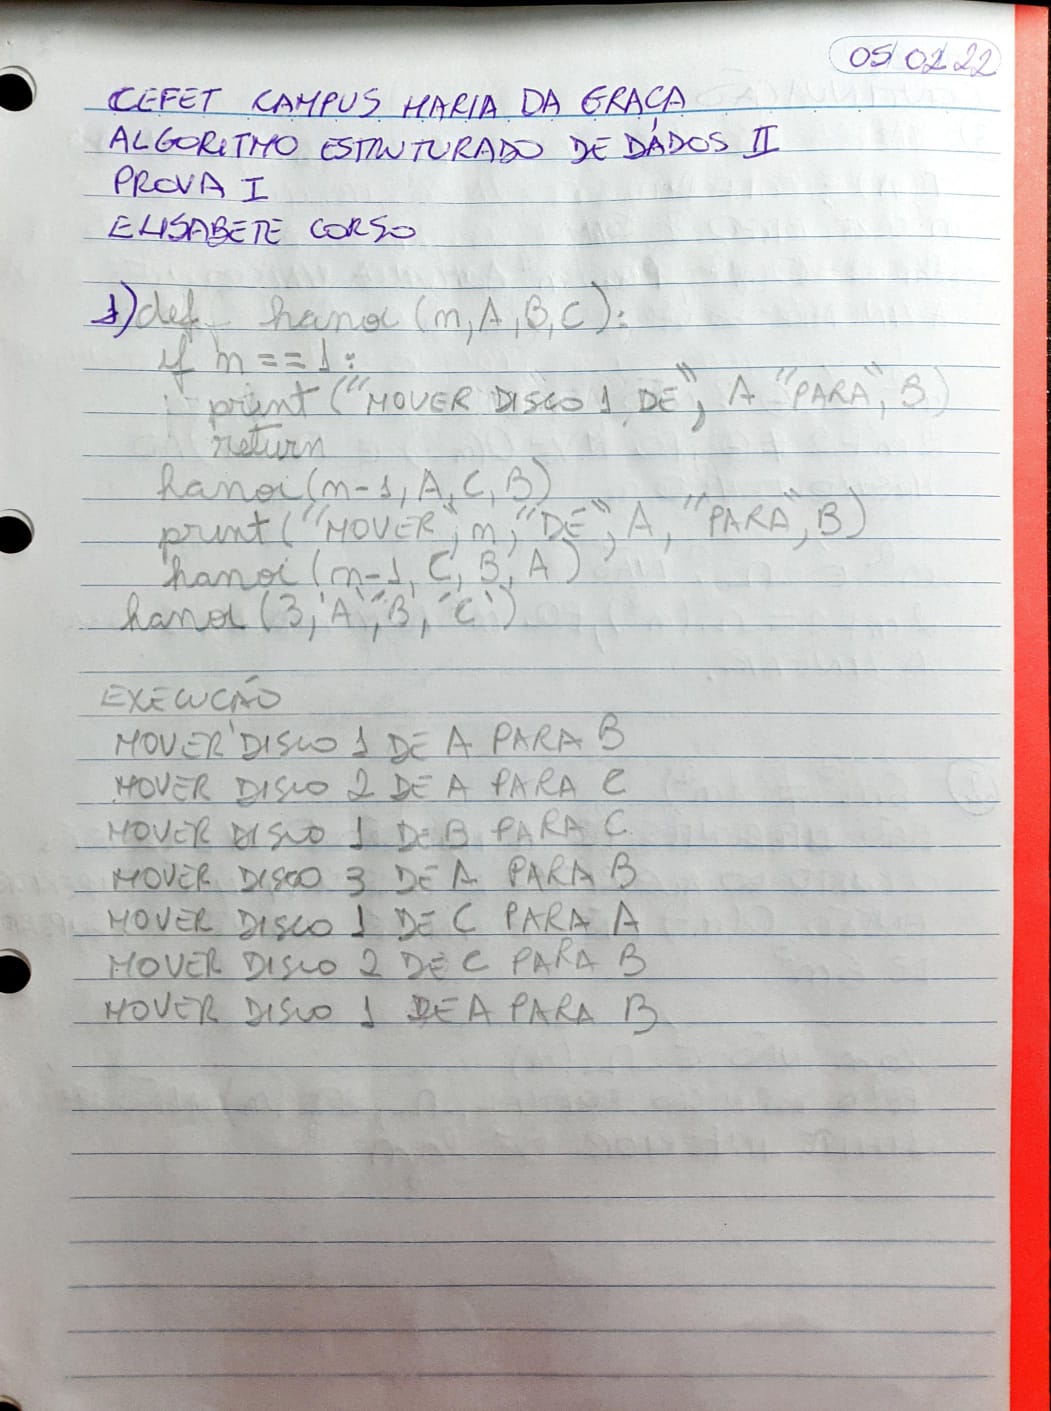 05/02/22
CEFET CAMPUS MARIA DA GRAÇA
ALGORITMO ESTRUTURADO DE DADOS II
PROVA I
ELISABETE CORSO
1) def hanoi (n, A, B, C):
if n == 1:
print ("MOVER DISCO 1 DE", A "PARA", B)
return
hanoi (n-1, A, C, B)
print ("MOVER", n, "DE", A, "PARA", B)
hanoi (n-1, C, B, A)
hanoi (3, 'A', 'B', 'C')
EXECUÇÃO
MOVER DISCO 1 DE A PARA B
MOVER DISCO 2 DE A PARA C
MOVER DISCO 1 DE B PARA C
MOVER DISCO 3 DE A PARA B
MOVER DISCO 1 DE C PARA A
MOVER DISCO 2 DE C PARA B
MOVER DISCO 1 DE A PARA B